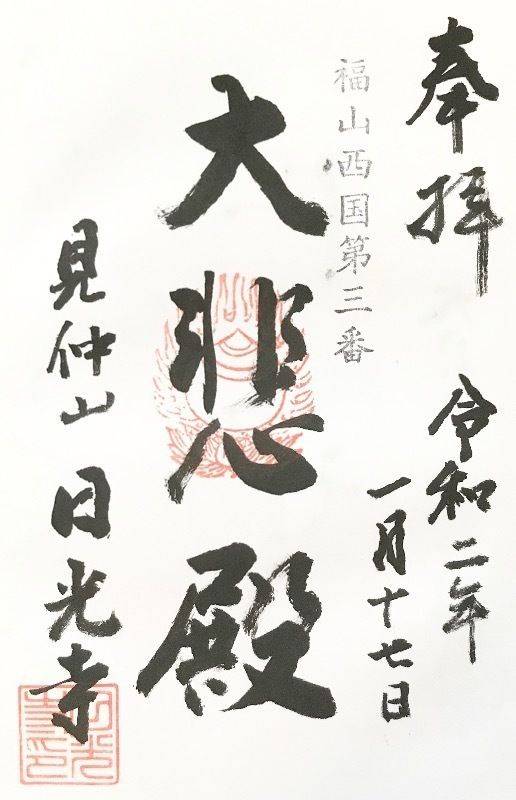 奉拝
令和二年
一月十七日
福山西国第三番
大悲殿
見仲山 日光寺